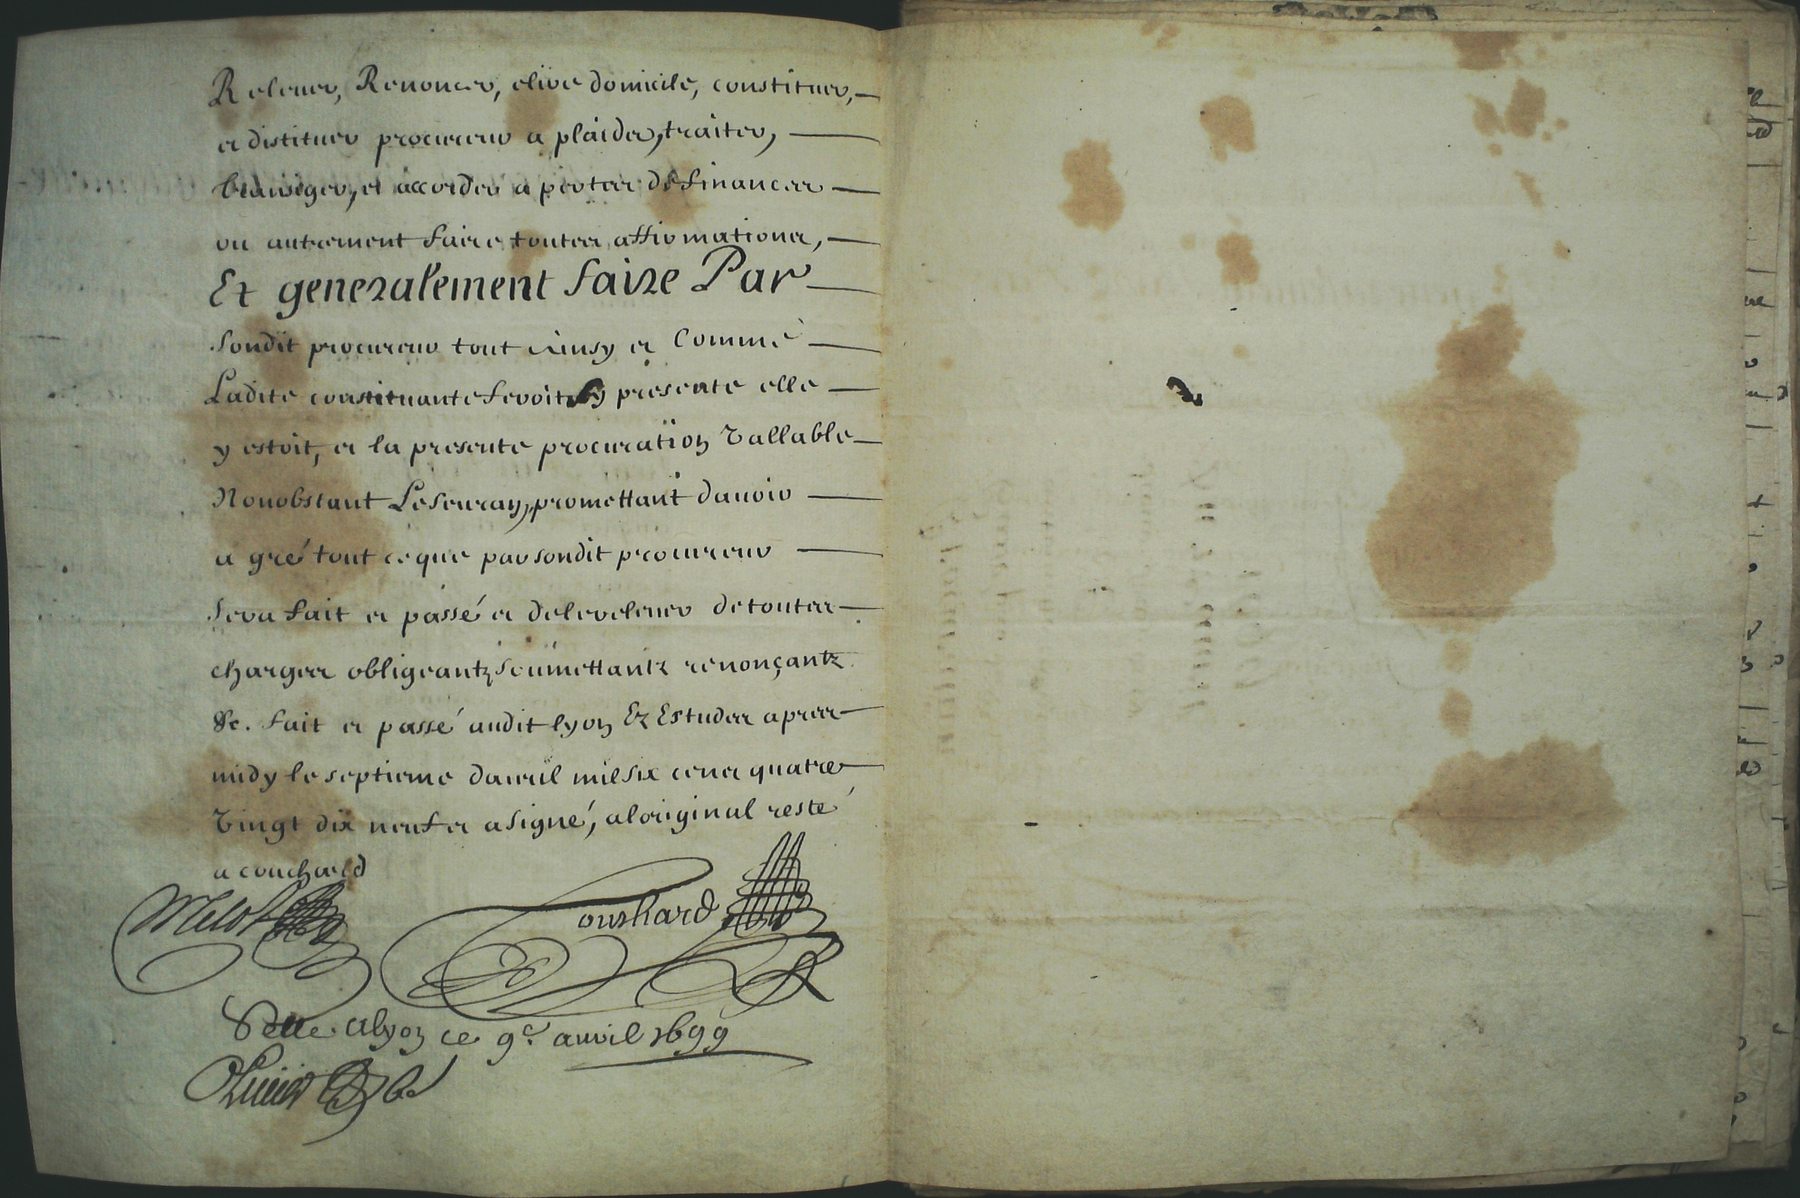 Releuer, Renoncer, elire domicile, constituer,
et distituer procureur a plaider, traiter,
transiger, et accorder a porter de financer
ou autrement faire toutes affirmationes,
Et generalement faire Par
sondit procureur tout ainsy et Comme
Ladite constituante feroit sy presente elle
y estoit, et la presente procuration Vallable
Nonobstant Le surran, promettant dauoir
a gré tout ce que par sondit procureur
sera fait et passé et de le releuer de toutes
charges obligeantz soumettantz renonçantz
&c. fait et passé audit lyon Ez Estudes apres
midy le septieme dauril mil six cens quatre
Vingt dix neuf et a signé, a loriginal resté
a couchard
Couchard
Selle a lyon ce 9e. auril 1699